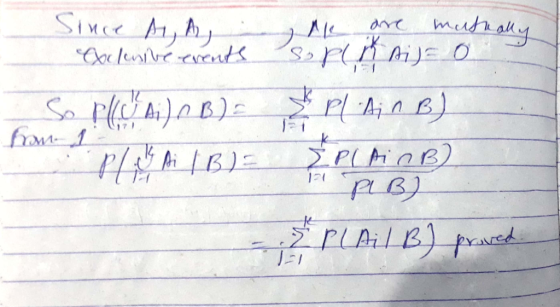 Since A₁, A₁, ..., Ak are mutually
exclusive events So P(⋂ᵢ₌₁ᵏ Ai) = 0
So P((⋃ᵢ₌₁ᵏ Ai) ∩ B) = Σᵢ₌₁ᵏ P(Ai ∩ B)
From 1
P(⋃ᵢ₌₁ᵏ Ai | B) = Σᵢ₌₁ᵏ P(Ai ∩ B) / P(B)
= Σᵢ₌₁ᵏ P(Ai | B) proved